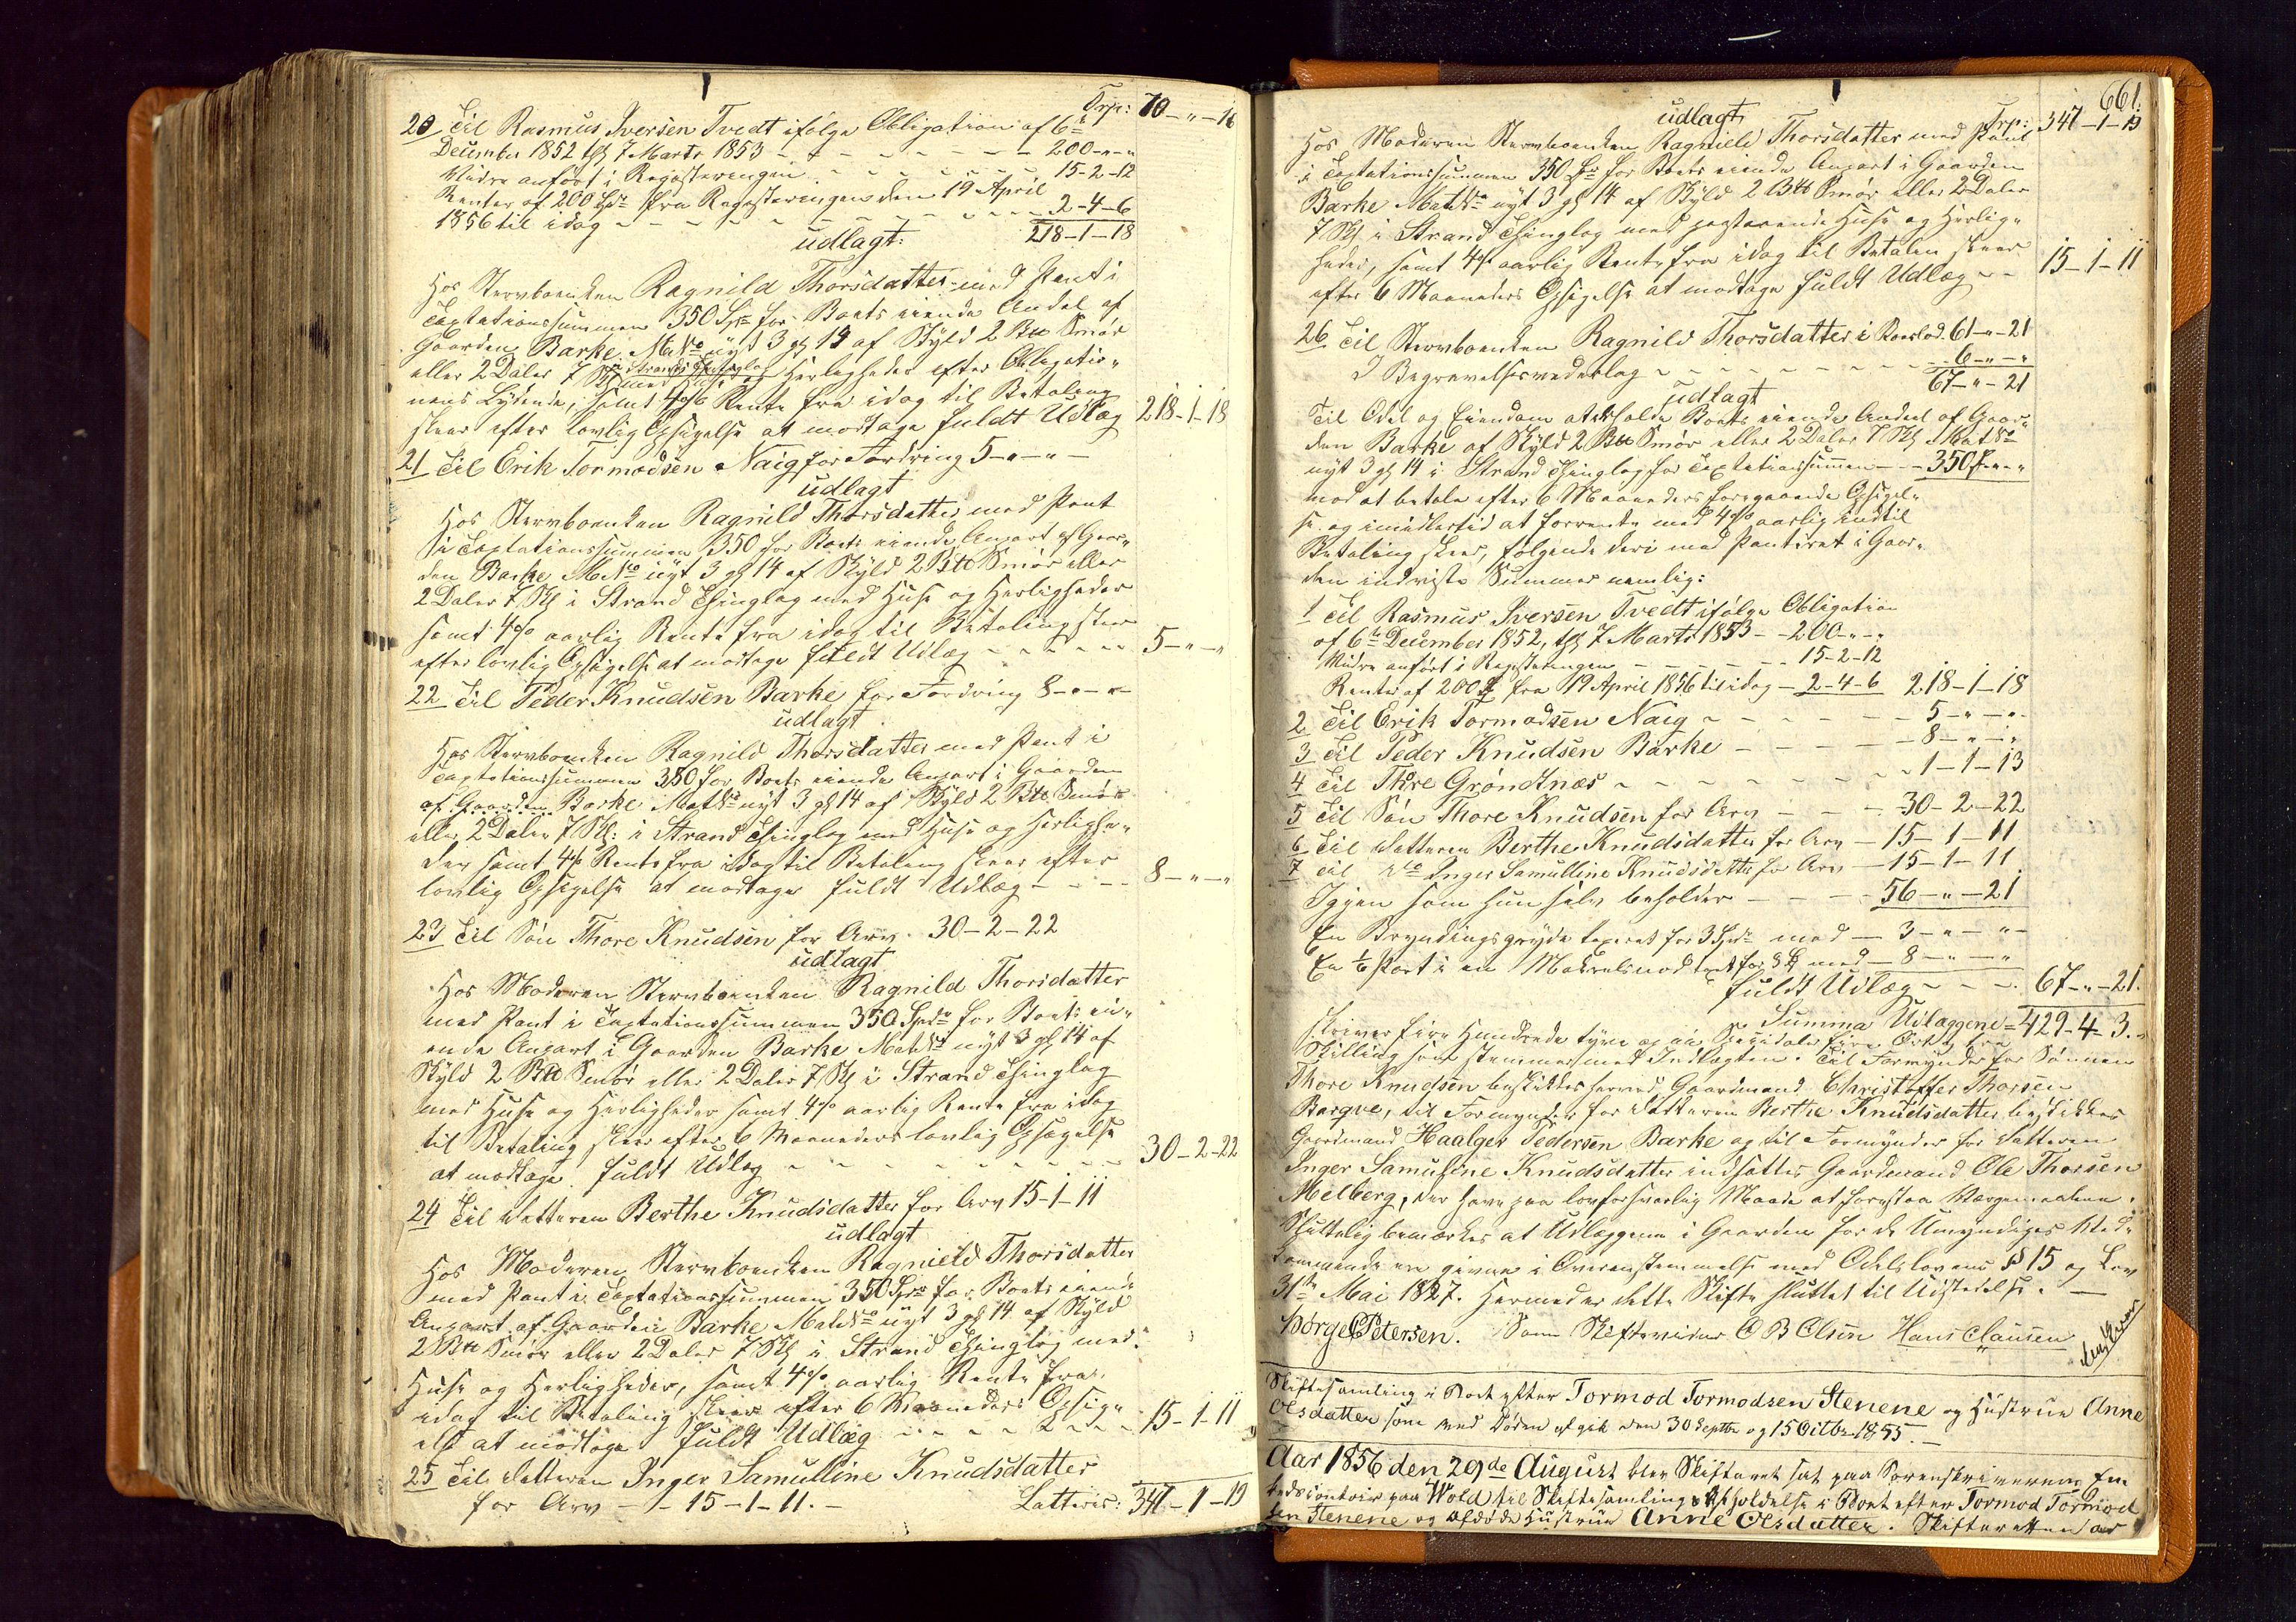 Trp: 70 - " - 16
20 Til Rasmus Iversen Tvedt ifølge Obligation af 6te
December 1852 tgl 7 Marts 1853 - - - - 200 - " - "
Videre anført i Registeringen - - - - 15-2-12
Renter af 200 Spd fra Registeringen den 19 April
1856 til idag - - - - 2-4-6
218-1-18
udlagt:
Hos Stervboenken Ragnild Thorsdatter med Pant i
Taxtationssummen 350 Spd for Boets eiende Andel af
Gaarden Barke MNo nyt 3 gl 14 af Skyld 2 Btt Smør
eller 2 Daler 7 Skl i Strands Thinglag
med Huse og Herligheder efter Obligatio-
nens Lydende, samt 4 % Rente fra idag til Betaling
skeer efter lovlig Opsigelse at modtage fuldt Udlæg 218-1-18
21 Til Erik Tormodsen Naig for Fordring 5 - " - " -
udlagt
Hos Stervboenken Ragnild Thorsdatter med Pant
i Taxtationssummen 350 for Boets eiende Anpart af Gaar-
den Barke MNo nyt 3 gl 14 af Skyld 2 Btt Smør eller
2 Daler 7 Skl i Strand Thinglag med Huse og Herligheder
samt 4 % aarlig Rente fra idag til Betaling skeer
efter lovlig Opsigelse at modtage fuldt Udlæg - - - - 5 - " - "
22 Til Peder Knudsen Barke for Fordring 8 - " - " -
udlagt
Hos Stervboenken Ragnild Thorsdatter med Pant i
Taxtationssummen 350 for Boets eiende Anpart i Gaarden
af Gaarden Barke MatNo nyt 3 gl 14 af Skyld 2 Btt Smør
eller 2 Daler 7 Skl: i Strand Thinglag med Huse og Herlighe-
der samt 4 % Rente fra idag til Betaling skeer efter
lovlig Opsigelse at modtage fuldt Udlæg - - - - 8 - " - "
23 Til Søn Thore Knudsen for Arv 30-2-22
udlagt
Hos Moderen Stervboenken Ragnild Thorsdatter
med Pant i Taxtationssummen 350 Spd for Boets ei-
ende Anpart i Gaarden Barke MatNo nyt 3 gl 14 af
Skyld 2 Btt Smør eller 2 Daler 7 Skl i Strand Thinglag
med Huse og Herligheder samt 4 % aarlig Rente fra idag
til Betaling skeer efter 6 Maaneders lovlig Opsigelse
at modtage fuldt Udlæg - - - - 30-2-22
24 Til Datteren Berthe Knudsdatter for Arv 15-1-11
udlagt
Hos Moderen Stervboenken Ragnield Thorsdatter
med Pant i Taxtationssummen 350 Spd for Boets eiende
Anpart af Gaarden Barke MatNo nyt 3 gl 14 af Skyld
2 Btt Smør eller 2 Daler 7 Skl i Strand Thinglag med
Huse og Herligheder, samt 4 % aarlig Rente fra
idag til Betaling skeer efter 6 Maaneders Opsig-
else at modtage fuldt Udlæg - - - - 15-1-11
25 Til Datteren Inger Samulline Knudsdatter
for Arv - - 15-1-11. -
Latteris: 347-1-19
661.
Trp: 347-1-19
udlagt
Hos Moderen Stervboenken Ragnield Thorsdatter med Pant
i Taxtationssummen 350 Spd for Boets eiende Anpart i Gaarden
Barke MatNo nyt 3 gl 14 af Skyld 2 Btt Smør eller 2 Daler
7 Skl i Strand Thinglag med paastaaende Huse og Herlig-
heder, samt 4 % aarlig Rente fra idag til Betalen skeer
efter 6 Maaneders Opsigelse at modtage fuldt Udlæg - - 15-1-11
26 Til Stervboenken Ragnild Thorsdatter i Boeslod 61 - " - 21
I Begravelsesvederlag - - - - 6 - " - "
67 - " - 21
udlagt
Til Odel og Eiendom at beholde Boets eiende Andeel af Gaar-
den Barke af Skyld 2 Btt Smør eller 2 Daler 7 Skl MatNo
nyt 3 gl 14 i Strand Thinglag for Taxtationssummen - - 350 - " - "
mod at betale efter 6 Maaneders foregaaende Opsigel-
se og imidlertid at forrente med 4 % aarlig indtil
Betaling skeer, følgende deri med Panteret i Gaar-
den indviste Summer nemlig:
1 Til Rasmus Iversen Tvedt ifølge Obligation
af 6te December 1852, tgl 7 Marts 1853 - - 200 - " - "
Videre anført i Registeringen - - - - 15-2-12
Renter af 200 fra 19 April 1856 til idag - 2-4-6 218-1-18
2 Til Erik Tormodsen Naig - - - - 5 - " - " -
3 Til Peder Knudsen Barke - - - - 8 - " - "
4 Til Thore Grøndtnæs - - - - 1-1-13
5 Til Søn Thore Knudsen for Arv - - - 30-2-22
6 Til Datteren Berthe Knudsdatter for Arv - 15-1-11
7 Til Dto Inger Samulline Knudsdatter for Arv - 15-1-11
Igjen som hun selv beholder - - - - 56 - " - 21
En Bryndingsgryde taxeret for 3 Spd med - 3 - " - " -
En 1/6 Part i en Makrelsnod taxt for 8 med - 8 - " - "
fuldt Udlæg - - - 67 - " - 21.
Summa Udlæggene = 429-4-3.
skriver fire Hundrede tyve og ni Speciedaler fire Ort og tre
Skilling som stemmer med Indtægten. Til Formynder for Sønnen
Thore Knudsen beskikkes herved Gaardmand Christoffer Thorsen
Barque, til Formynder for Datteren Berthe Knudsdatter beskikkes
Gaardmand Haalger Pedersen Barke og til Formynder for Datteren
Inger Samuline Knudsdatter indsættes Gaardmand Ole Thorsen
Melberg, der have paa lovforsvarlig Maade at forestaa Værgemaalene.
Sluttelig bemærkes at Udlæggene i Gaarden for de Umyndiges Ved-
kommende ere givne i Overenstemmelse med Odelslovens § 15 og Lov
31te Mai 1827. Hermed er dette Skifte sluttet til Udstedelse. -
Børge Petersen. Som Skiftevidner O B Olsen Hans Clausen
Skiftesamling i Boet efter Tormod Tormodsen Stenene og Hustrue Anne
Olsdatter som ved Døden afgik den 30 Septbr og 15 Octbr 1855. -
Aar 1856 den 29de August blev Skifteret sat paa Sorenskriverens Em-
bedscontoir paa Wold til Skiftesamlings Afholdelse i Boet efter Tormod Tormod
sen Stenene og afdøde Hustrue Anne Olsdatter. Skifteretten var